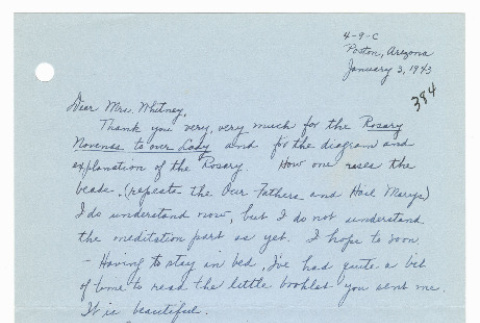 4-9-C
Poston, Arizona
January 3, 1943
384
Dear Mrs. Whitney,
Thank you very, very much for the Rosary
Novenas to our Lady and for the diagram and
explanation of the Rosary. How one uses the
beads, (repeats the Our Fathers and Hail Marys)
I do understand now, but I do not understand
the meditation part as yet. I hope to soon.
- Having to stay in bed, I've had quite a bit
of time to read the little booklet you sent me.
It is beautiful.